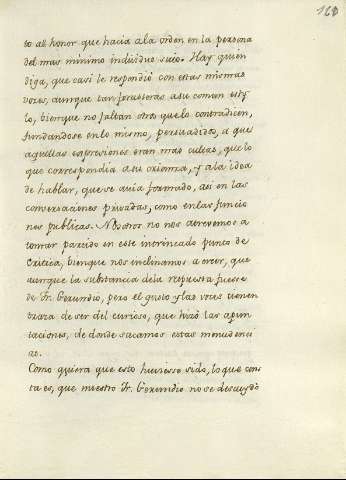 160
to all honor que hacia a la orden en la persona
del mas minimo individuo suio. Hay quien
diga, que casi le respondiò con estas mismas
voces, aunque tan forasteras a su comun esty
lo, bienque no faltan otros que lo contradicen,
fundandose en lo mismo, persuadidos, a que
aquellas expresiones eran mas cultas, que lo
que correspondia a su crianza, y a la idea
de hablar, que se avia formado, asi en las
conversaciones privadas, como en las funcio
nes publicas. Nosotros no nos atrevemos a
tomar partido en este intrincado punto de
Critica, bienque nos inclinamos a creer, que
aunque la substancia de la respuesta fuese
de Fr. Gerundio, pero el gusto y las voces tienen
traza de ser del curioso, que hizo las apun
taciones, de donde sacamos estas menudenci
as.
Como quiera que esto huviesse sido, lo que cons
ta es, que nuestro Fr. Gerundio no se descuydò